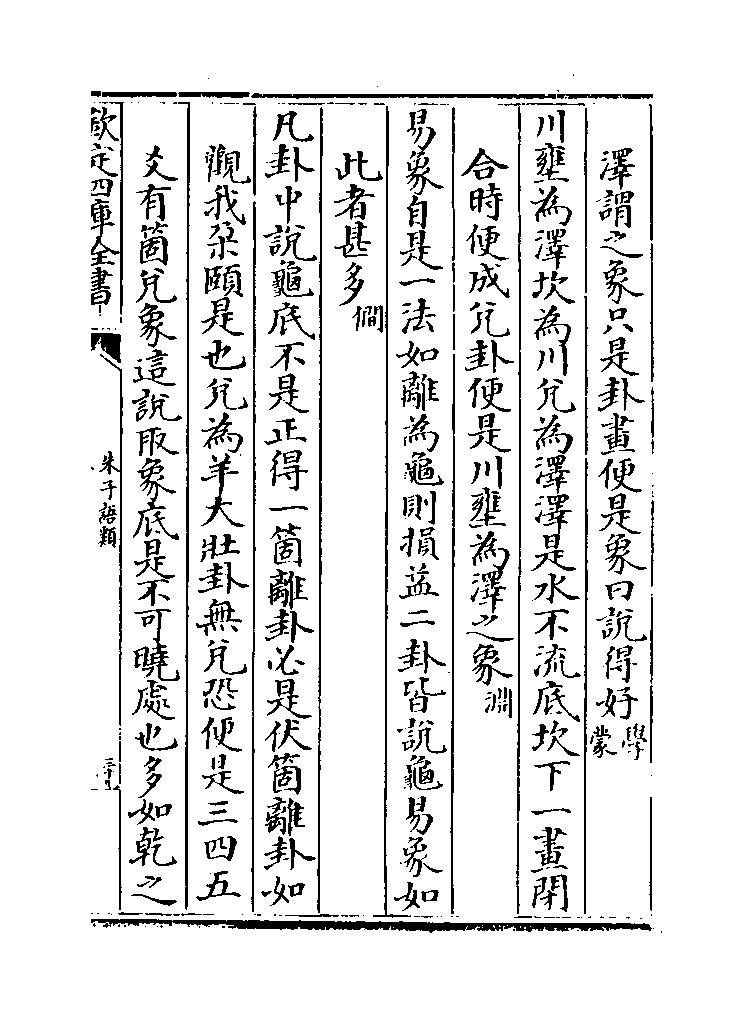 澤謂之象只是卦畫便是象曰說得好學蒙
川壅為澤坎為川兌為澤澤是水不流底坎下一畫閉
合時便成兌卦便是川壅為澤之象淵
易象自是一法如離為龜則損益二卦皆說龜易象如
此者甚多僴
凡卦中說龜底不是正得一箇離卦必是伏箇離卦如
觀我朶頤是也兌為羊大壯卦無兌恐便是三四五
爻有箇兌象這說取象底是不可曉處也多如乾之
欽定四庫全書
朱子語類